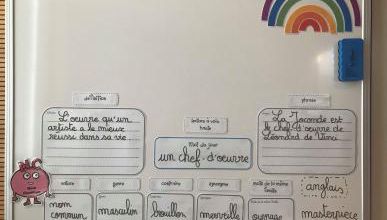 définition
L'oeuvre qu'un
artiste a le mieux
réussi dans sa vie...
lecture à voix
haute
Mot du jour
un chef-d'oeuvre
phrase
La Joconde est
le chef-d'oeuvre de
Léonard de Vinci
nature
nom
commun
genre
masculin
contraire
brouillon
synonyme
merveille
mots de la même
famille
ouvrage
anglais
masterpiece